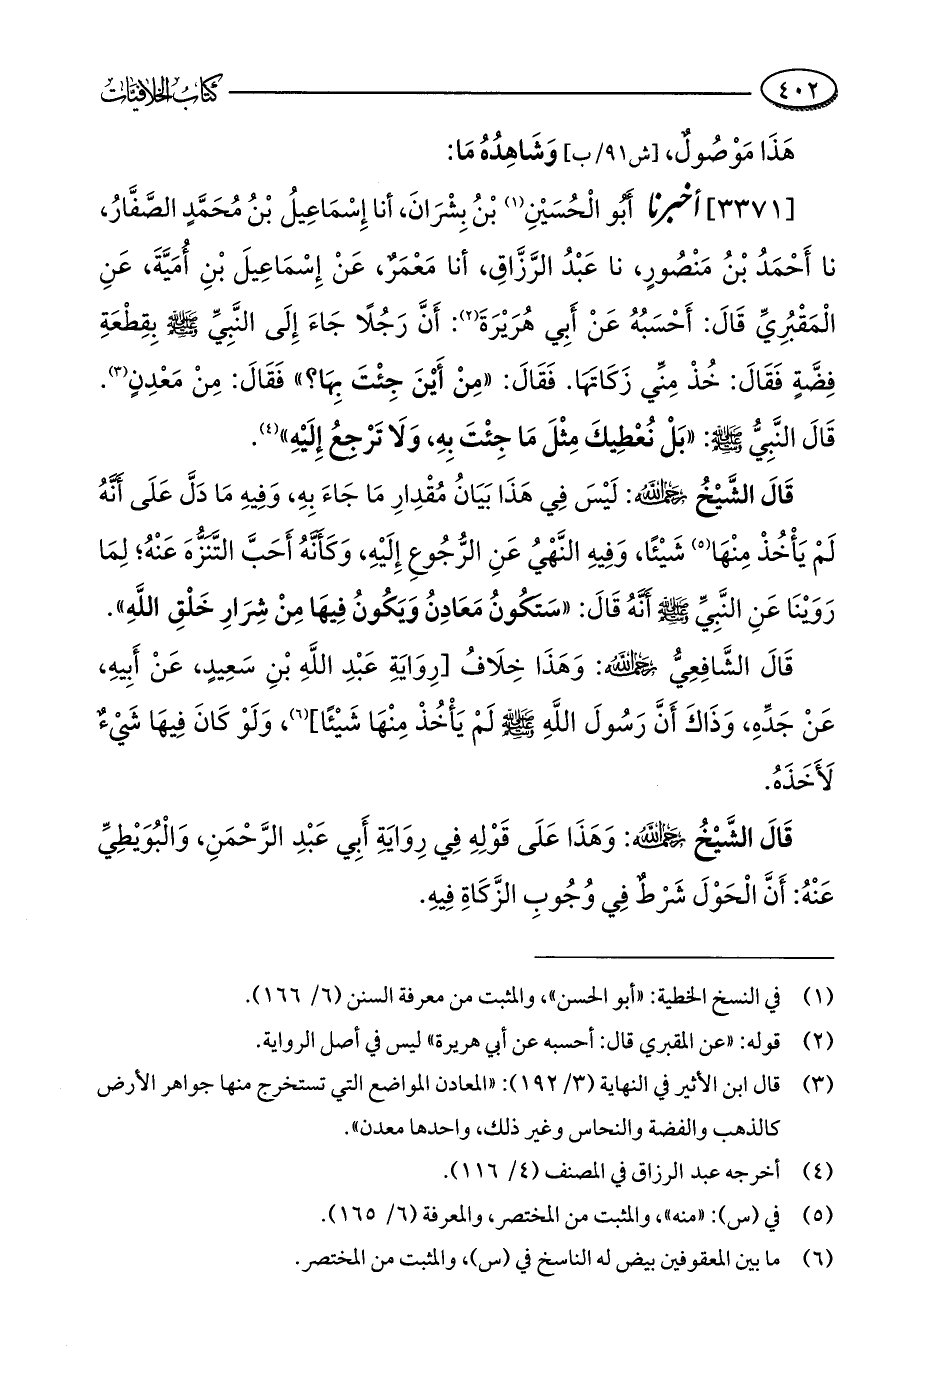 ٤٠٢ كتاب الخلافيات
هَذَا مَوْصُولٌ، [ش٩١/ ب] وَشَاهِدُهُ مَا:
[٣٣٧١] أخبرنا أَبُو الْحُسَيْنِ(١) بْنُ بِشْرَانَ، أنا إِسْمَاعِيلُ بْنُ مُحَمَّدٍ الصَّفَّارُ،
نا أَحْمَدُ بْنُ مَنْصُورٍ، نا عَبْدُ الرَّزَّاقِ، أنا مَعْمَرٌ، عَنْ إِسْمَاعِيلَ بْنِ أُمَيَّةَ، عَنِ
الْمَقْبُرِيِّ قَالَ: أَحْسَبُهُ عَنْ أَبِي هُرَيْرَةَ(٢): أَنَّ رَجُلًا جَاءَ إِلَى النَّبِيِّ ﷺ بِقِطْعَةِ
فِضَّةٍ فَقَالَ: خُذْ مِنِّي زَكَاتَهَا. فَقَالَ: «مِنْ أَيْنَ جِئْتَ بِهَا؟» فَقَالَ: مِنْ مَعْدِنٍ(٣).
قَالَ النَّبِيُّ ﷺ: «بَلْ نُعْطِيكَ مِثْلَ مَا جِئْتَ بِهِ، وَلَا تَرْجِعُ إِلَيْهِ»(٤).
قَالَ الشَّيْخُ رحمه الله: لَيْسَ فِي هَذَا بَيَانُ مُقْدِارِ مَا جَاءَ بِهِ، وَفِيهِ مَا دَلَّ عَلَى أَنَّهُ
لَمْ يَأْخُذْ مِنْهَا(٥) شَيْئًا، وَفِيهِ النَّهْيُ عَنِ الرُّجُوعِ إِلَيْهِ، وَكَأَنَّهُ أَحَبَّ التَّنَزُّهَ عَنْهُ؛ لِمَا
رَوَيْنَا عَنِ النَّبِيِّ ﷺ أَنَّهُ قَالَ: «سَتَكُونُ مَعَادِنُ وَيَكُونُ فِيهَا مِنْ شِرَارِ خَلْقِ اللَّهِ».
قَالَ الشَّافِعِيُّ رحمه الله: وَهَذَا خِلَافُ [رِوَايَةِ عَبْدِ اللَّهِ بْنِ سَعِيدٍ، عَنْ أَبِيهِ،
عَنْ جَدِّهِ، وَذَاكَ أَنَّ رَسُولَ اللَّهِ ﷺ لَمْ يَأْخُذْ مِنْهَا شَيْئًا](٦)، وَلَوْ كَانَ فِيهَا شَيْءٌ
لَأَخَذَهُ.
قَالَ الشَّيْخُ رحمه الله: وَهَذَا عَلَى قَوْلِهِ فِي رِوَايَةِ أَبِي عَبْدِ الرَّحْمَنِ، وَالْبُوَيْطِيِّ
عَنْهُ: أَنَّ الْحَوْلَ شَرْطٌ فِي وُجُوبِ الزَّكَاةِ فِيهِ.
(١) في النسخ الخطية: «أبو الحسن»، والمثبت من معرفة السنن (٦/ ١٦٦).
(٢) قوله: «عن المقبري قال: أحسبه عن أبي هريرة» ليس في أصل الرواية.
(٣) قال ابن الأثير في النهاية (٣/ ١٩٢): «المعادن المواضع التي تستخرج منها جواهر الأرض
كالذهب والفضة والنحاس وغير ذلك، واحدها معدن».
(٤) أخرجه عبد الرزاق في المصنف (٤/ ١١٦).
(٥) في (س): «منه»، والمثبت من المختصر، والمعرفة (٦/ ١٦٥).
(٦) ما بين المعقوفين بيض له الناسخ في (س)، والمثبت من المختصر.